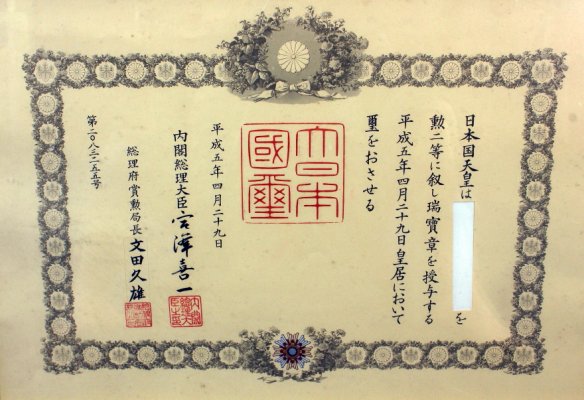 日本国天皇は
を
勲二等に叙し瑞寶章を授与する
平成五年四月二十九日皇居において
璽をおさせる
大日本
國璽
平成五年四月二十九日
内閣総理大臣 宮澤喜一
総理府賞勲局長 文田久雄
第二〇八三二五五号